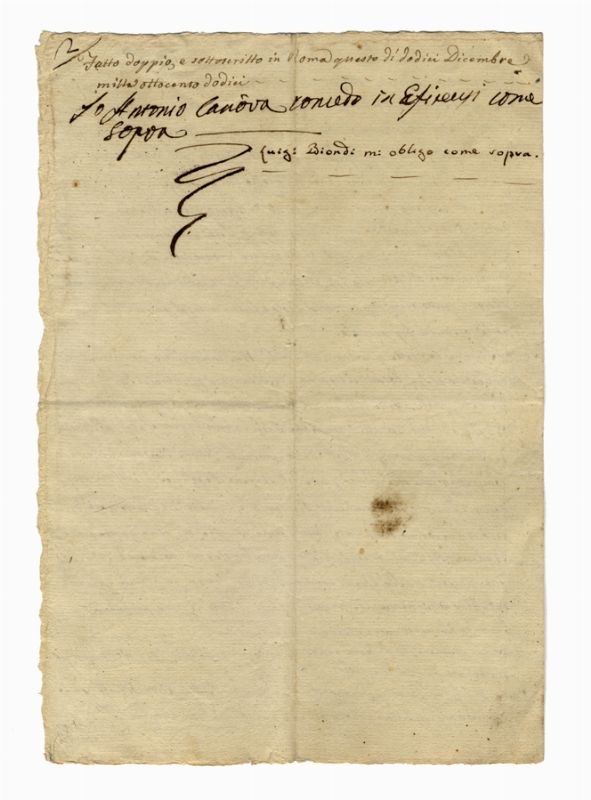 2/
Fatto doppio, e sottoscritto in Roma questo dì dodici Dicembre
mille ottocento dodici
Io Antonio Canòva concedo in Efiteusi come
Sopra
Luigi Biondi mi obligo come sopra.